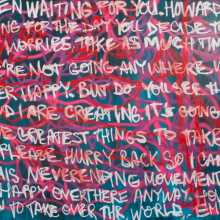 EN WAITING FOR YOU. HOWAR
NG FOR THE DAY YOU DECIDE TO
WORRIES. TAKE AS MUCH TIM
ERE NOT GOING ANYWHERE W
ER HAPPY. BUT DO YOU SEE
D ARE CREATING. IT'S GOING
E GREATEST THINGS TO TAKE
PLEASE HURRY BACK SO I CAN
HIS NEVERENDING MOVEMENT
HAPPY OVER THERE ANYWAY.
N TO TAKE OVER THE WORLD.